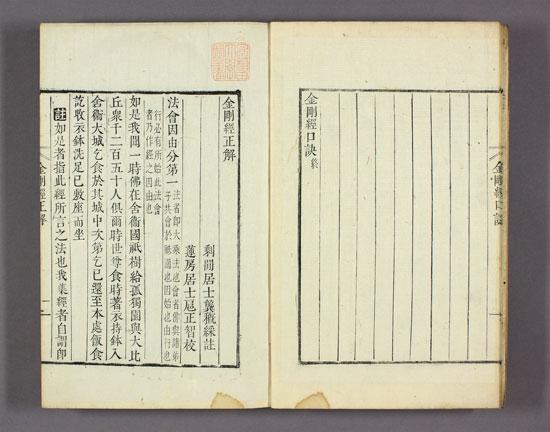 金剛經口訣
金剛經口訣終
金剛經正解
剩閒居士龔穊綵註
蓮房居士扈正智校
法會因由分第一
法者即大乘法也會者佛與諸弟
子共會於祇園也因始也由行也
行必有所始此法會
者乃作經之因由也
如是我聞一時佛在舍衛國祇樹給孤獨園與大比
丘衆千二百五十人俱爾時世尊食時著衣持鉢入
舍衛大城乞食於其城中次第乞已還至本處飯食
訖收衣鉢洗足已敷座而坐
註如是者指此經所言之法也我集經者自謂即
金剛經正解 一